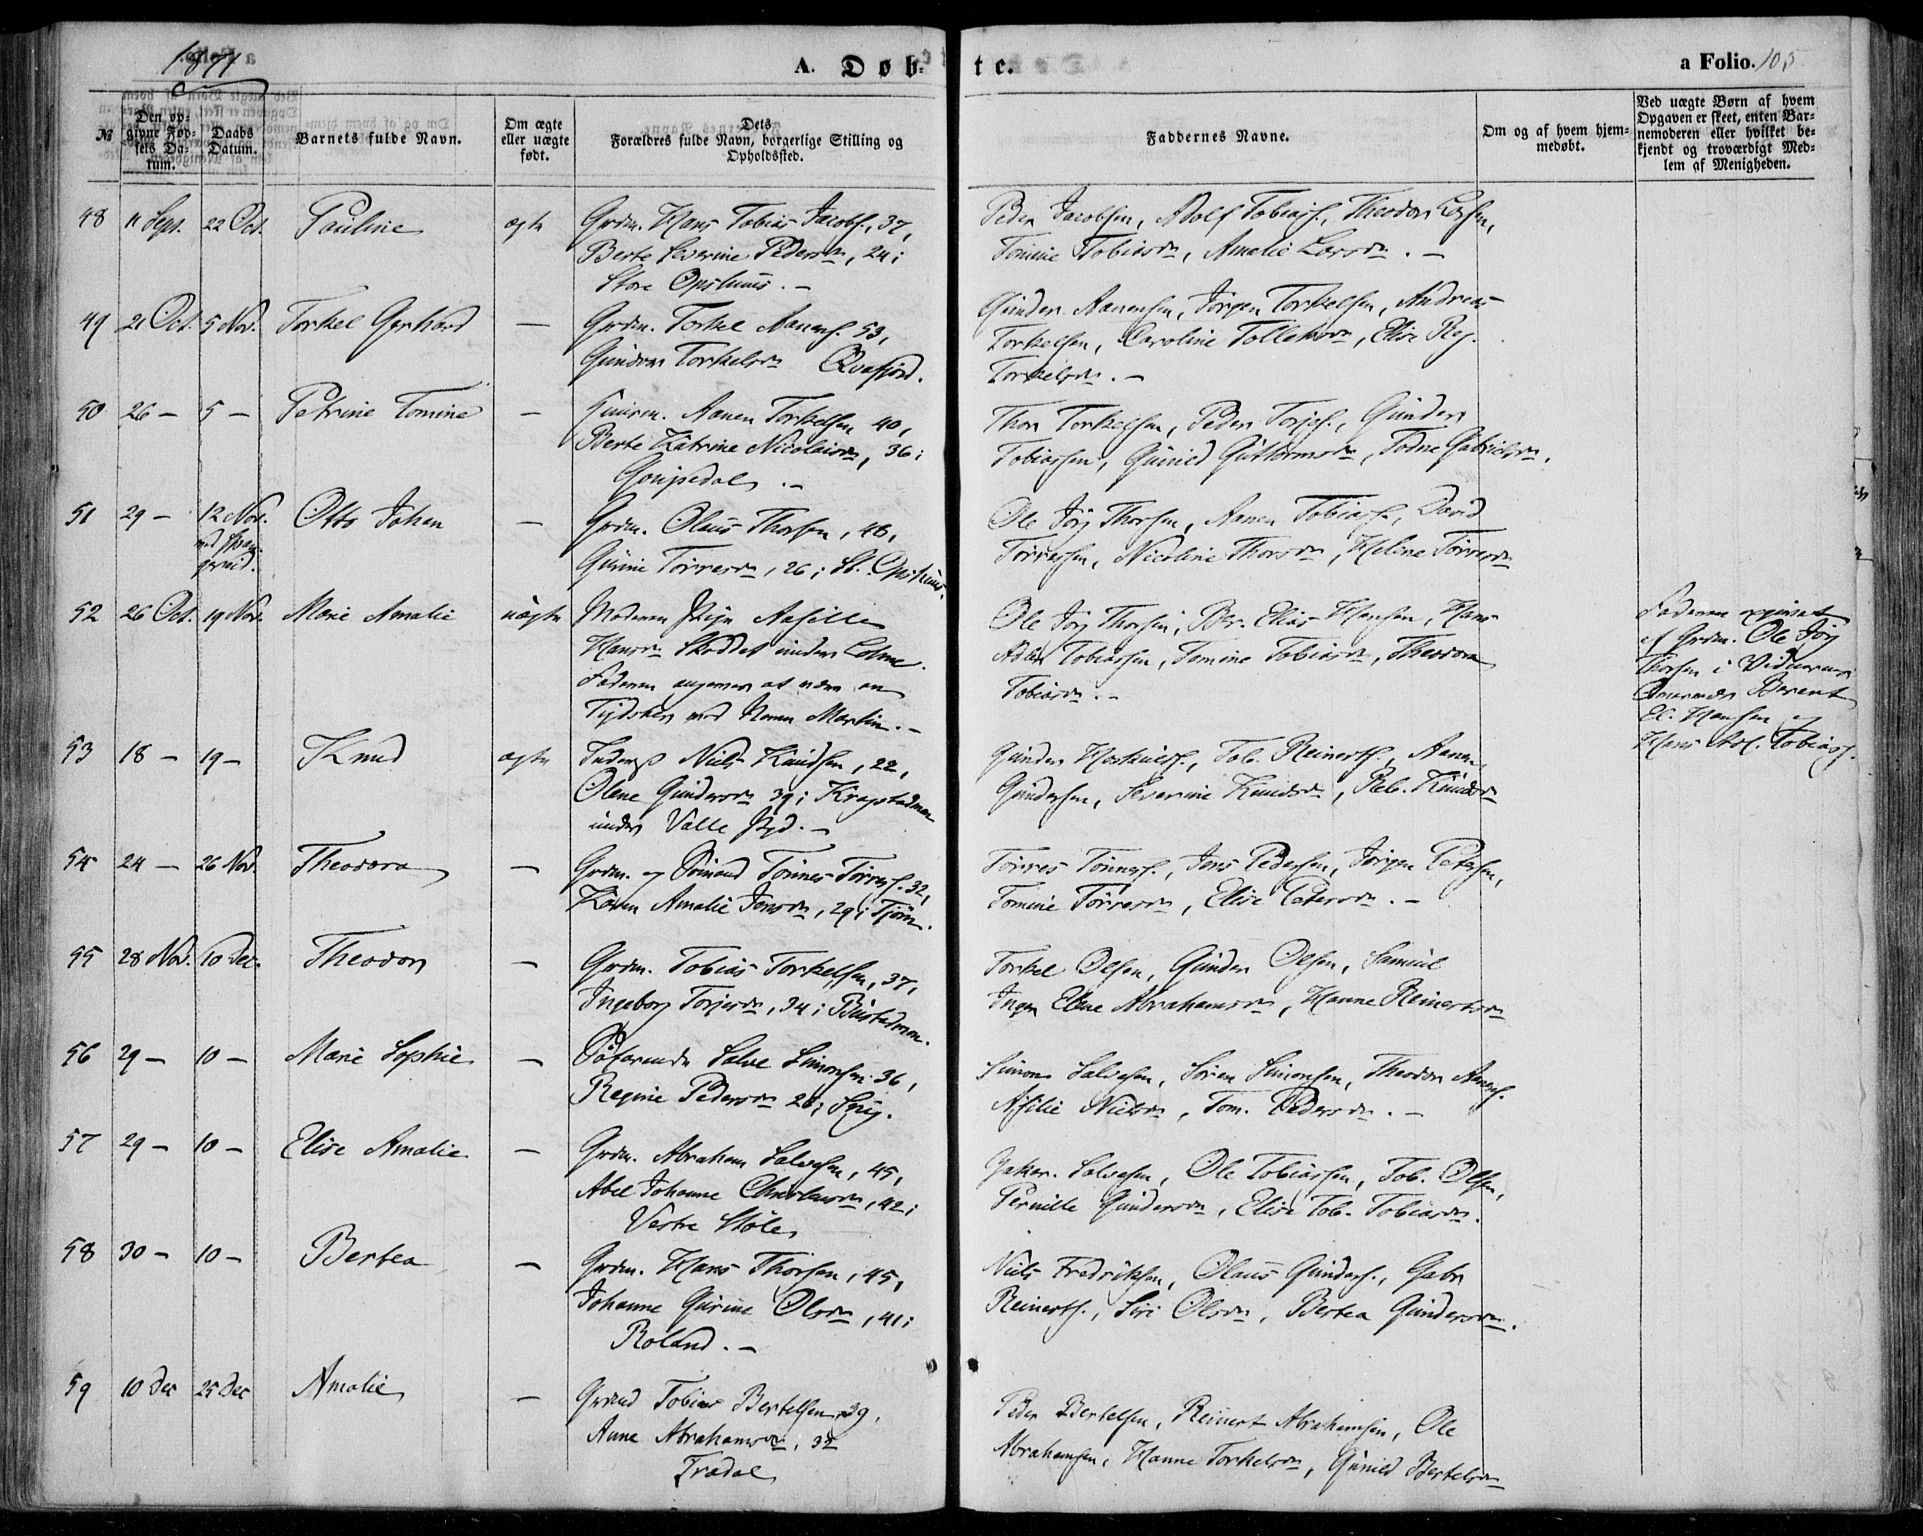 1871
A. Døb-
te.
a Folio. 105
№
Den op-
givne Fød-
sels Da-
tum.
Daabs
Datum.
Barnets fulde Navn.
Om ægte
eller uægte
født.
Dets
Forældres fulde Navn, borgerlige Stilling og
Opholdssted.
Faddernes Navne.
Om og af hvem hjem-
medøbt.
Ved uægte Børn af hvem
Opgaven er skeet, enten Bar-
nemoderen eller hvilket be-
kjendt og troværdigt Med-
lem af Menigheden.
48 11 Sept. 22 Oct. Pauline ægte Grdm. Hans Tobias Jacobs., 37,
Berte Severine Pedersdr, 24;
Store Opshuus. —
Peder Jacobsen, Adolf Tobiass., Theodor
Tomine Tobiasdr, Amalie Larsdr. —
49 21 Oct. 5 Nov. Torkel Gerhard — Grdm. Torkel Aanens. 53,
Torkelsdr Qvafjord.
Gunder Aanensen, Jørgen Torkelsen, Andreas
Torkelsen, Caroline Tollaksdr, Elise Reg.
Torkelsdr. —
50 26 — 5 — Petrine Tomine — Aanen Torkelsen 40,
Berte Katrine Nicolaisdr, 36;
Gangsdal. —
Thor Torkelsen, Peder Torjes., Gunder
Tobiassen, Gunild Guttormsdr, Todne Gabrielsdr.
51 29 — 12 Nov. Otto Johan — Grdm. Olaus Thorsen, 46,
Gurine Tørresdr, 26; St. Opshuus.
Ole Jørg Thorsen, Aanen Tobiass., David
Tørressen, Nicoline Thorsdr, Helene Tørresdr
52 26 Oct. 19 Nov. Marie Amalie uægte Moderen Pige Assille
Hansdr Skoddet under
Faderen angives at være en
Tydsker ved Navn Martin. —
Ole Jørg Thorsen, Ber. Elias Hansen, Hans
Adolf Tobiassen, Tomine Tobiasdr, Theodora
Tobiasdr. —
Faderen opgivet
af Grdm. Ole Jørg
Thorsen i Vidnernes
Berent
El. Hansen og
Hans Adol. Tobias.
53 18 — 19 — Knud ægte Niels Knudsen, 22,
Olene Gundersdr 39; Kragstadmoen
under Valle Pgd. —
Gunder Tob. Reinerts., Aanen
Gundersen, Severine Knudsdr, Reb. Knudsdr
54 24 — 26 Nov. Theodora — Grdm. og Sømand Tønnes Tørres. 32,
Karen Amalie Jensdr, 29; Tjøm.
Tørres Tønnes., Jens Pedersen, Jørgen Petersen,
Tomine Tørresdr, Elise Petersdr. —
55 28 Nov. 10 Dec. Theodor — Grdm. Tobias Torkelsen, 37,
Ingeborg Torjesdr, 34; Bustadmoen.
Torkel Olsen, Gunder Olsen, Samuel
Inger Elene Abrahamsdr, Hanne Reinertsdr
56 29 — 10 — Marie Sophie — Søfarende Salve Simonsen 36,
Regine Pedersdr 28;
Simon Salvesen, Søren Simonsen, Theodor Aanens.
Assilie Nielsdr, Tom. Pedersdr. —
57 29 — 10 — Elise Amalie — Grdm. Abraham Salvesen, 45,
Abel Johanne 42;
Vestre Støle
Salvesen, Ole Tobiassen, Tob. Olsen,
Pernille Gundersdr, Elise Tob. Tobiasdr.
58 30 — 10 — Bertea — Grdm. Hans Thorsen, 45,
Johanne Gurine Olsdr, 41;
Roland. —
Niels Fredriksen, Olaus Gunders., Gabr.
Reinerts., Siri Olsdr, Bertea Gundersdr.
59 10 Dec 25 Dec Amalie — Grmd Tobias Bertelsen, 39,
Anne Abrahamsdr, 32
Trædal
Peder Bertelsen, Reinert Abrahamsen, Ole
Abrahamsen, Hanne Torkelsdr, Gunild Bertelsdr